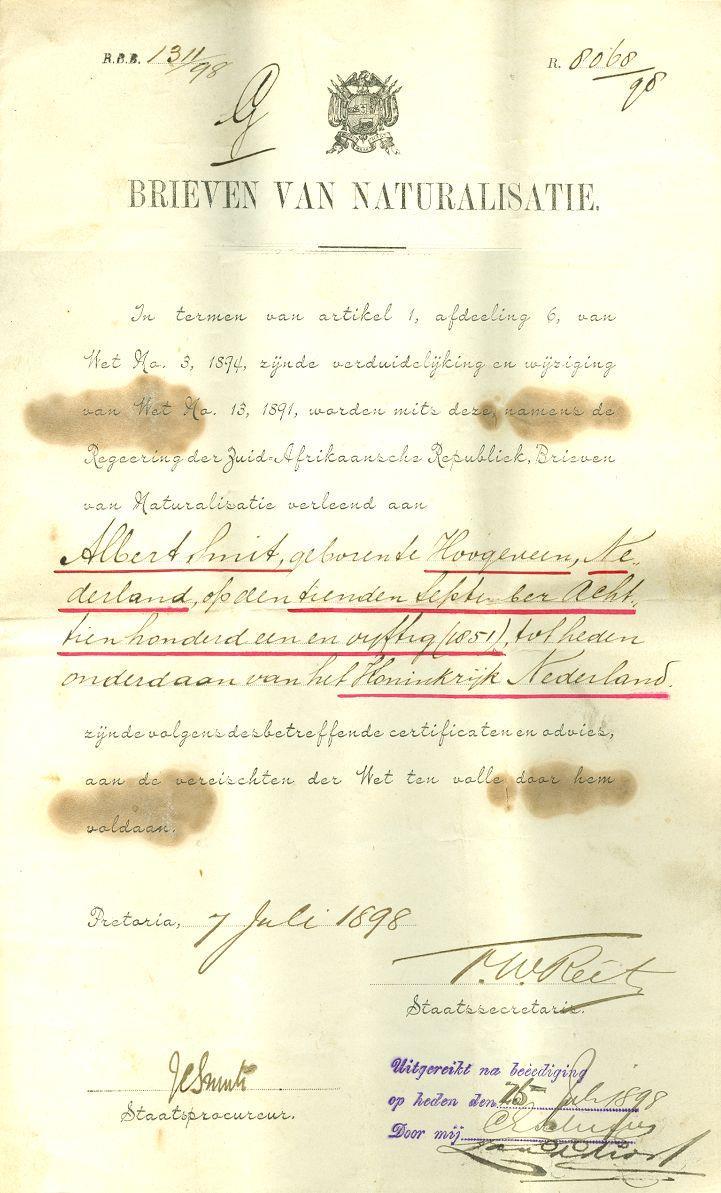 R.B.B. 1311/98
R. 8068/98
G
BRIEVEN VAN NATURALISATIE.
In termen van artikel 1, afdeeling 6, van
Wet No. 3, 1894, zijnde verduidelijking en wijziging
van Wet No. 13, 1891, worden mits deze, namens de
Regeering der Zuid-Afrikaansche Republiek, Brieven
van Naturalisatie verleend aan
Albert Smit, geboren te Hoogeveen, Ne-
derland, op den tienden September Acht-
tien honderd een en vyftig (1851), tot heden
onderdaan van het Koninkrijk Nederland.
zijnde volgens desbetreffende certificaten en advies,
aan de vereischten der Wet ten volle door hem
voldaan.
Pretoria, 7 Juli 1898
F.W. Reitz
Staatssecretaris.
JC Smuts
Staatsprocureur.
Uitgereikt na beëediging
op heden den 25 Juli 1898
Door mij